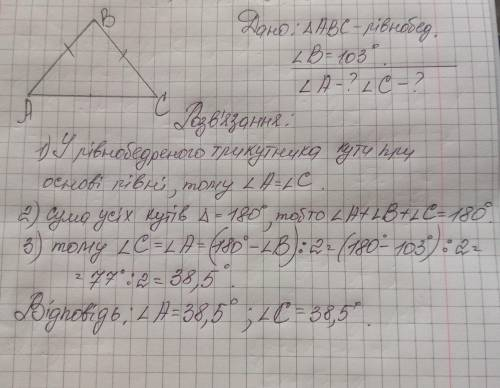 B
A
C
Дано: ΔABC - рівнобед.
∠B = 103°.
∠A - ? ∠C - ?
Розв'язання:
1) У рівнобедреного трикутника кути при
основі рівні, тому ∠A = ∠C.
2) Сума усіх кутів Δ = 180°, тобто ∠A + ∠B + ∠C = 180°
3) тому ∠C = ∠A = (180° - ∠B) : 2 = (180° - 103°) : 2 =
= 77° : 2 = 38,5°.
Відповідь: ∠A = 38,5° ; ∠C = 38,5°.